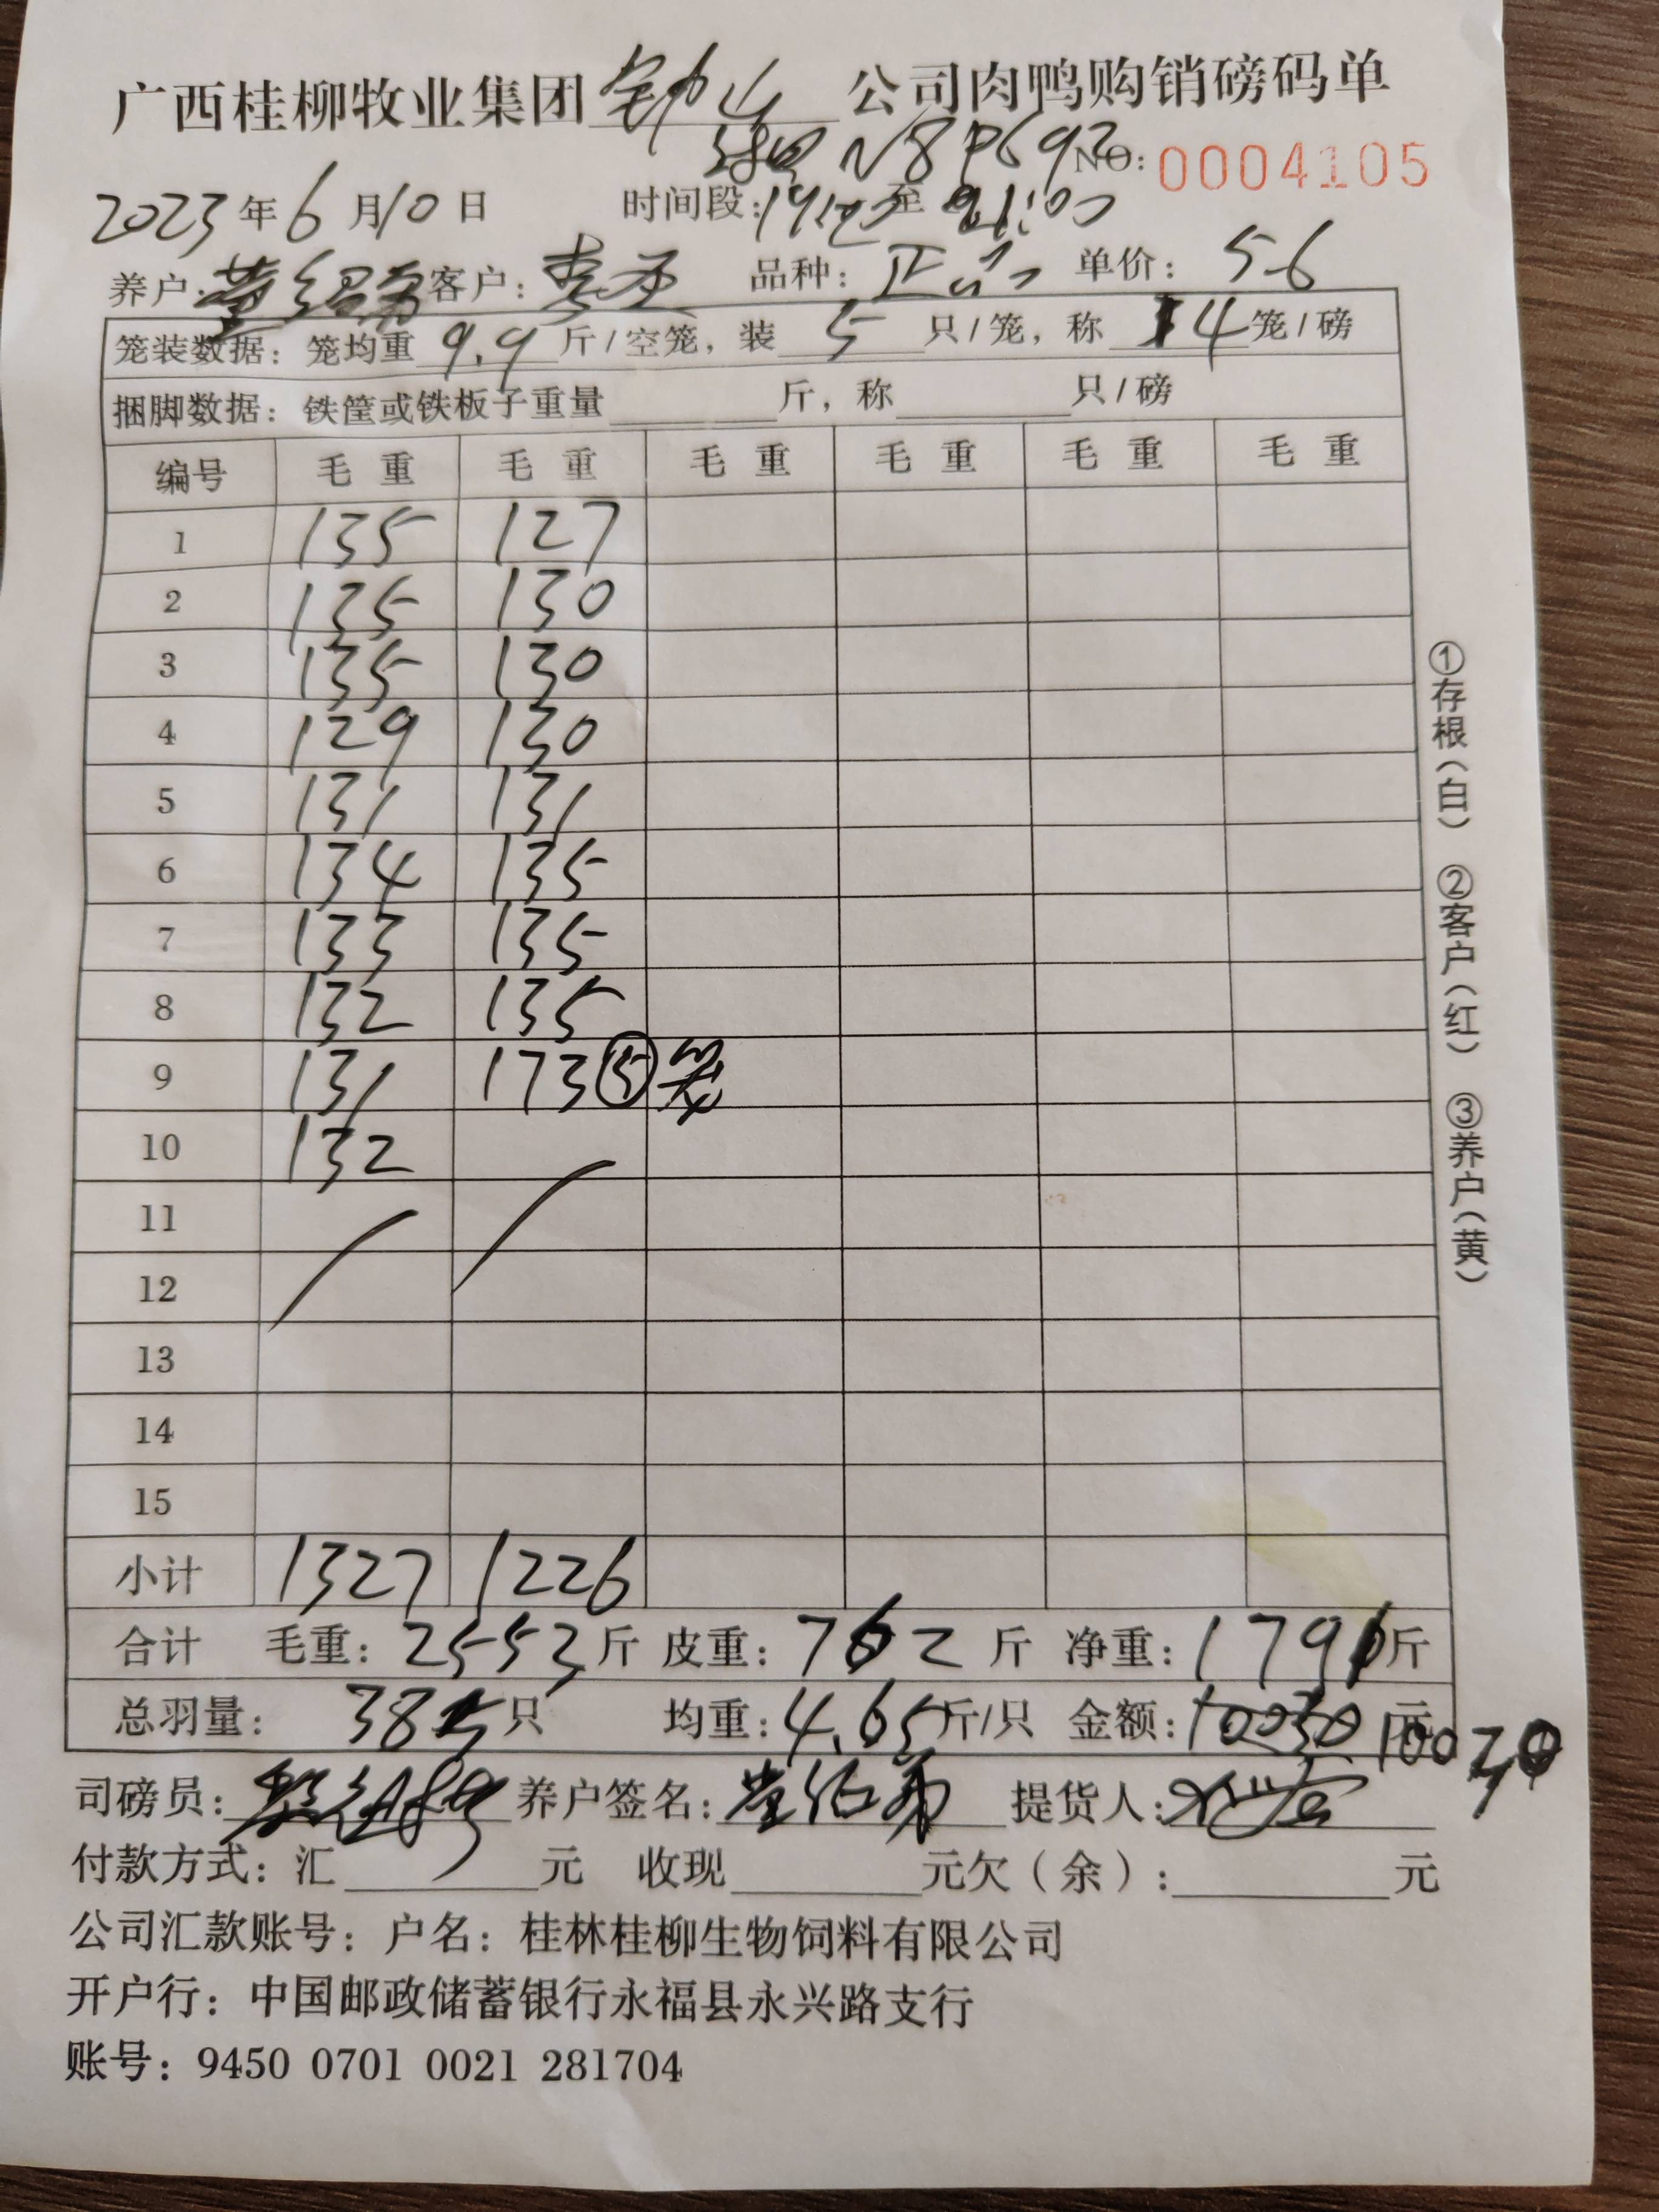 广西桂柳牧业集团钟山公司肉鸭购销磅码单
N8P692 NO: 0004105
2023年6月10日 时间段: 至 21:00
养户: 客户: 品种: 正品 单价: 5.6
笼装数据: 笼均重9.9斤/空笼, 装5只/笼, 称4笼/磅
捆脚数据: 铁筐或铁板子重量 斤, 称 只/磅
编号 毛重 毛重 毛重 毛重 毛重 毛重
1 135 127
2 135 130
3 135 130
4 129 130
5 131 131
6 134 135
7 133 135
8 132 135
9 131 173 ⑤笼
10 132
11
12
13
14
15
小计 1327 1226
合计 毛重: 2553斤 皮重: 762斤 净重: 1791斤
总羽量: 385只 均重: 4.65斤/只 金额: 10030元 10030
司磅员: 养户签名: 提货人:
付款方式: 汇 元 收现 元欠(余): 元
公司汇款账号: 户名: 桂林桂柳生物饲料有限公司
开户行: 中国邮政储蓄银行永福县永兴路支行
账号: 9450 0701 0021 281704
①存根(白) ②客户(红) ③养户(黄)